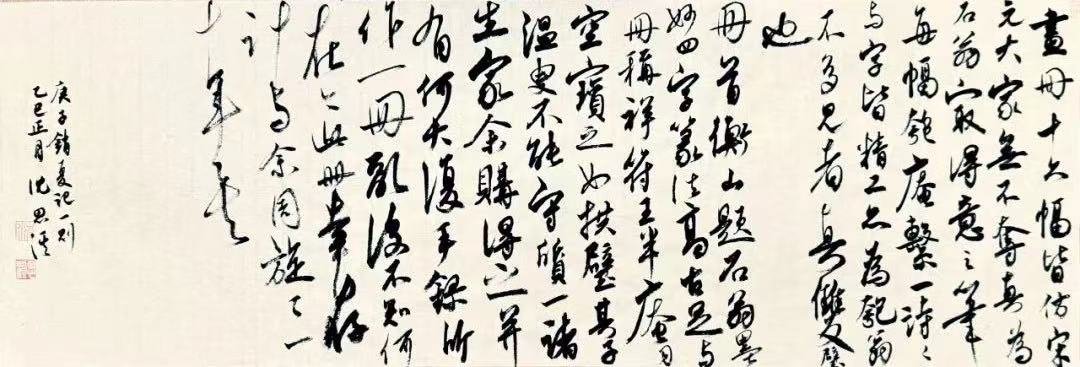 畫冊十六幅皆仿宋
元大家無不奪真為
石翁最得意之筆
每幅匏庵繫一詩詩
与字皆精工亦為匏翁
不多見者真雙璧
也
冊首衡山題石翁墨
妙四字篆法高古足与
冊稱祥符王半庵司
空寶之如拱璧其子
溫叟不能守質一諸
生家余購得之并
有何大復手錄所
作一冊亂後不知何
在此冊幸存
計与余周旋
年矣
庚子銷夏記一則
乙巳正月 沈思